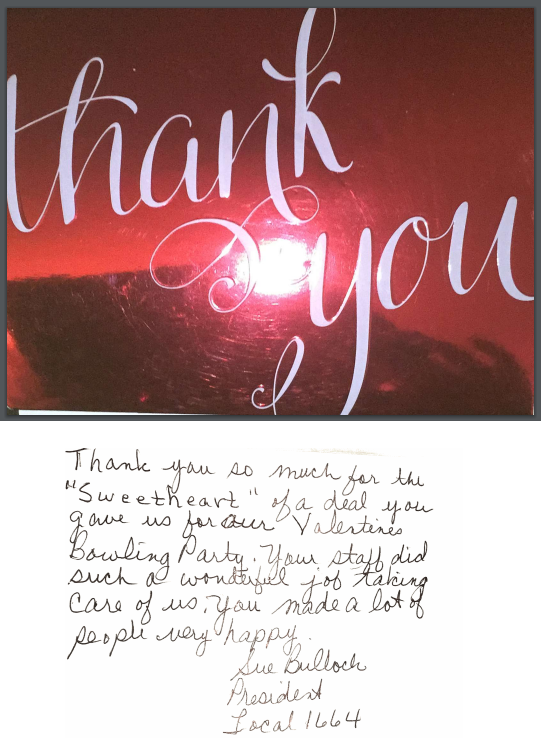 thank
you
Thank you so much for the
"Sweetheart" of a deal you
gave us for our Valentines
Bowling Party. Your staff did
such a wonderful job taking
care of us. You made a lot of
people very happy.
Sue Bulloch
President
Local 1664